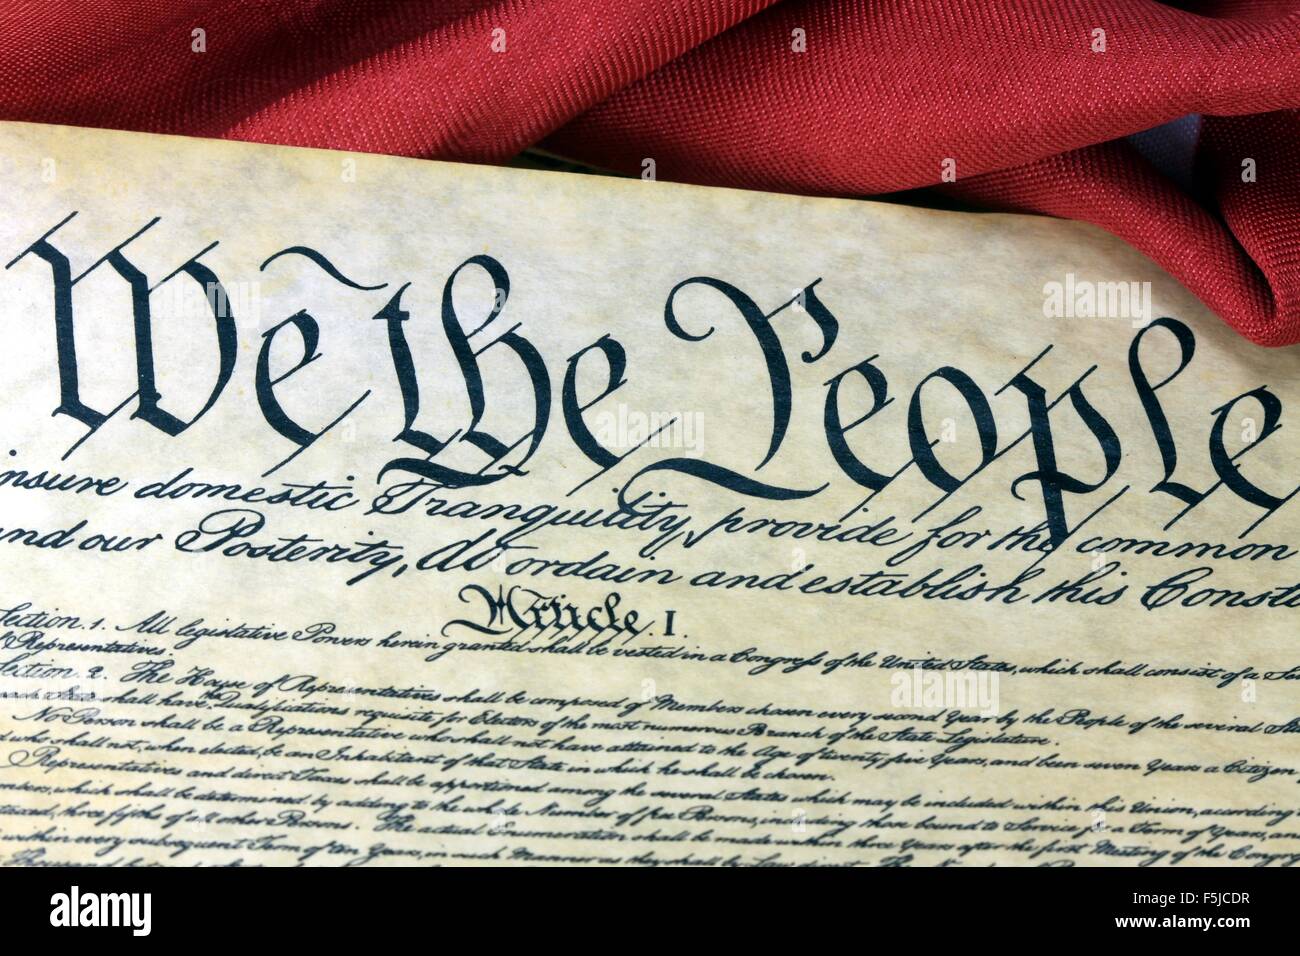 We the People
insure domestic Tranquility, provide for the common
and our Posterity, do ordain and establish this Constit
Article. I.
Section. 1. All legislative Powers herein granted shall be vested in a Congress of the United States, which shall consist of a Sen
Representatives.
Section. 2. The House of Representatives shall be composed of Members chosen every second Year by the People of the several Stat
each State shall have the Qualifications requisite for Electors of the most numerous Branch of the State Legislature.
No Person shall be a Representative who shall not have attained to the Age of twenty five Years, and been seven Years a Citizen
who shall not, when elected, be an Inhabitant of that State in which he shall be chosen.
Representatives and direct Taxes shall be apportioned among the several States which may be included within this Union, according
mbers, which shall be determined by adding to the whole Number of free Persons, including those bound to Service for a Term of Years, an
taxed, three fifths of all other Persons. The actual Enumeration shall be made within three Years after the first Meeting of the Congre
within every subsequent Term of ten Years, in such Manner as they shall by Law direct. The Number of
a
alamy stock photo
alamy
Image ID: F5JCDR
www.alamy.com